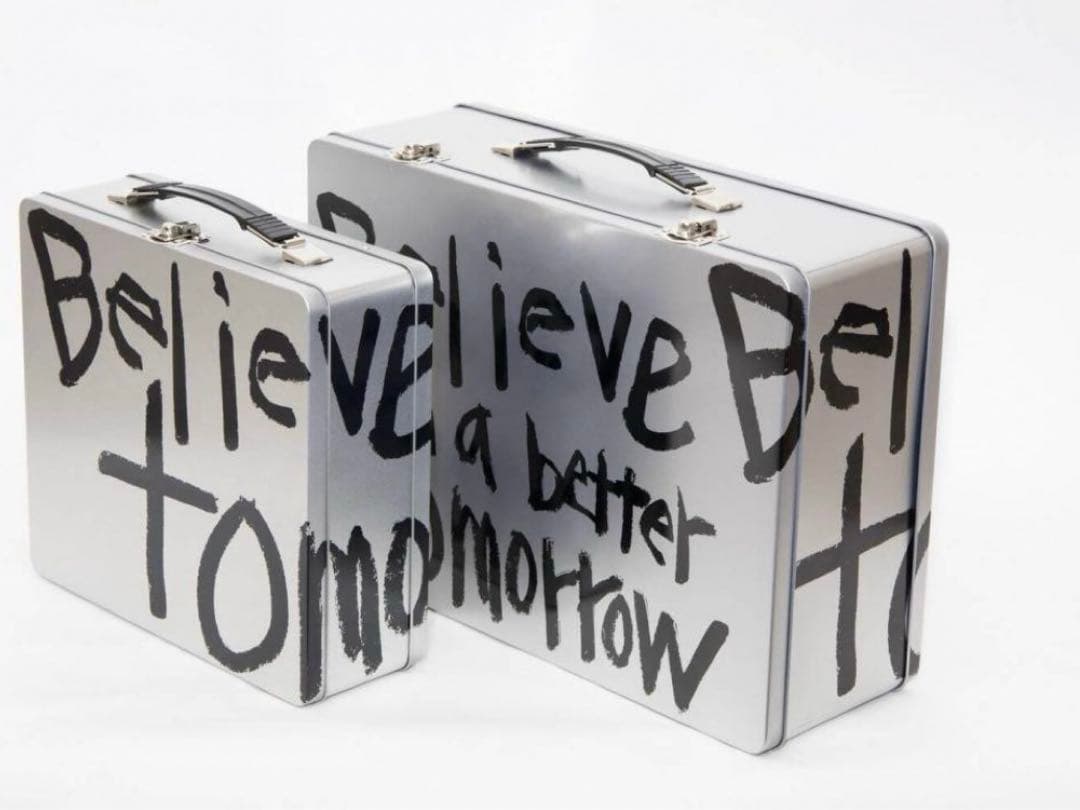 Believe
tomo
Believe
a better
tomorrow
Bel
to